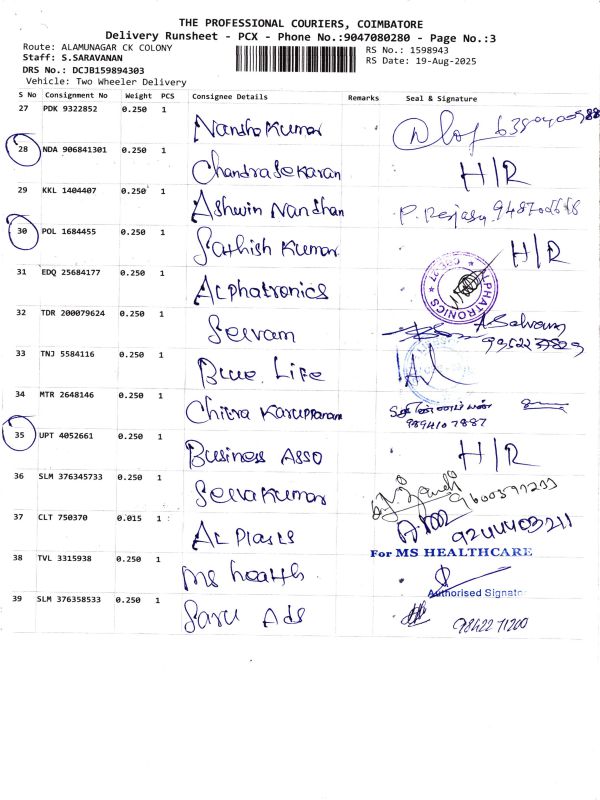 THE PROFESSIONAL COURIERS, COIMBATORE
Delivery Runsheet - PCX - Phone No.:9047080280 - Page No.:3
Route: ALAMUNAGAR CK COLONY
RS No.: 1598943
Staff: S.SARAVANAN
RS Date: 19-Aug-2025
DRS No.: DCJB159894303
Vehicle: Two Wheeler Delivery
S No Consignment No Weight PCS Consignee Details Remarks Seal & Signature
27 PDK 9322852 0.250 1 Nandha Kumar
28 NDA 906841301 0.250 1 Chandrasekaran H/R
29 KKL 1404407 0.250 1 Ashwin Nandhan
30 POL 1684455 0.250 1 Sathish Kumar H/R
31 EDQ 25684177 0.250 1 Alphatronics
32 TDR 200079624 0.250 1 Selvam
33 TNJ 5584116 0.250 1 Blue Life
34 MTR 2648146 0.250 1 Chitra Karuppanam 9894107887
35 UPT 4052661 0.250 1 Business Asso H/R
36 SLM 376345733 0.250 1 Selvakumar
37 CLT 750370 0.015 1 Al Plasts 9244403211
38 TVL 3315938 0.250 1 Ms health
For MS HEALTHCARE
Authorised Signator
39 SLM 376358533 0.250 1 Saru Ads 9842271200